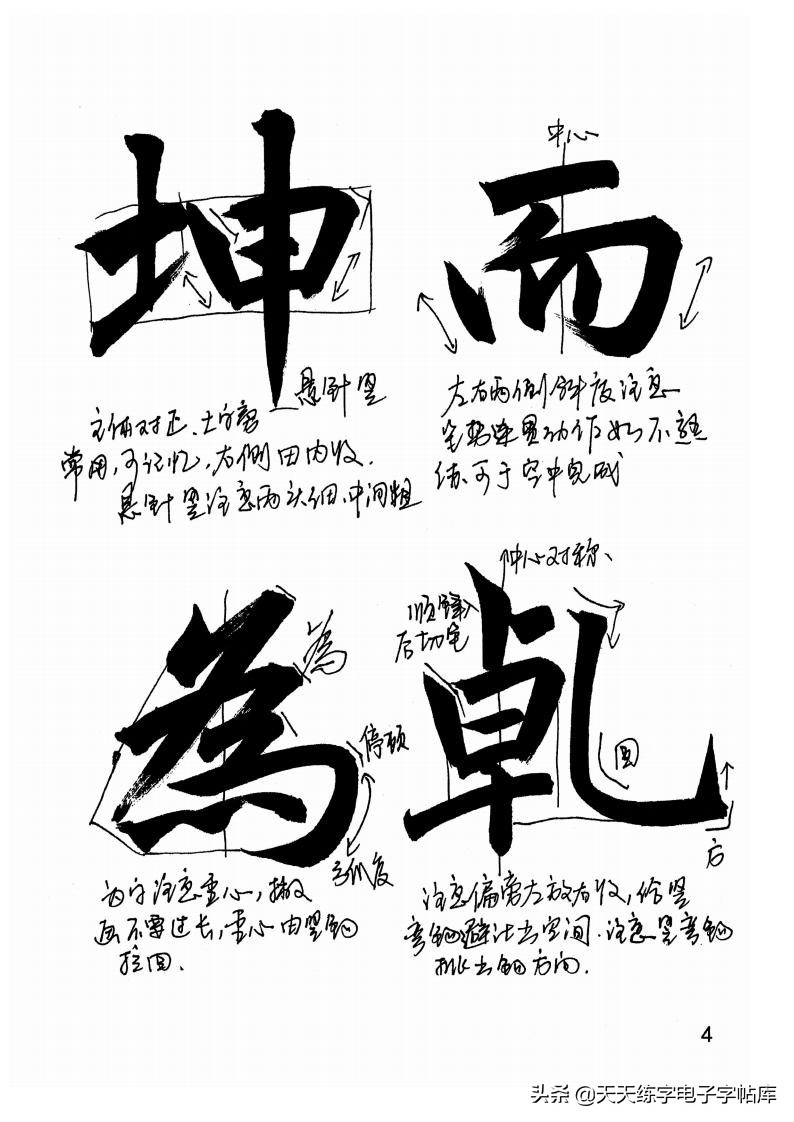 坤
而
中心
悬针竖
主体对正、土字旁
常用,可记忆,右侧田内收.
悬针竖注意两头细、中间粗
左右两侧斜度注意
笔势连贯动作如不熟
练可于空中完成
為
乹
為
停顿
弧度
中心对称、
顺锋入
后切笔
圆
后
为字注意重心,撇
画不要过长,重心由竖钩
拉回、
注意偏旁左放右收,给竖
弯钩避让出空间.注意竖弯钩
挑出钩方向.
4
头条 @天天练字电子字帖库